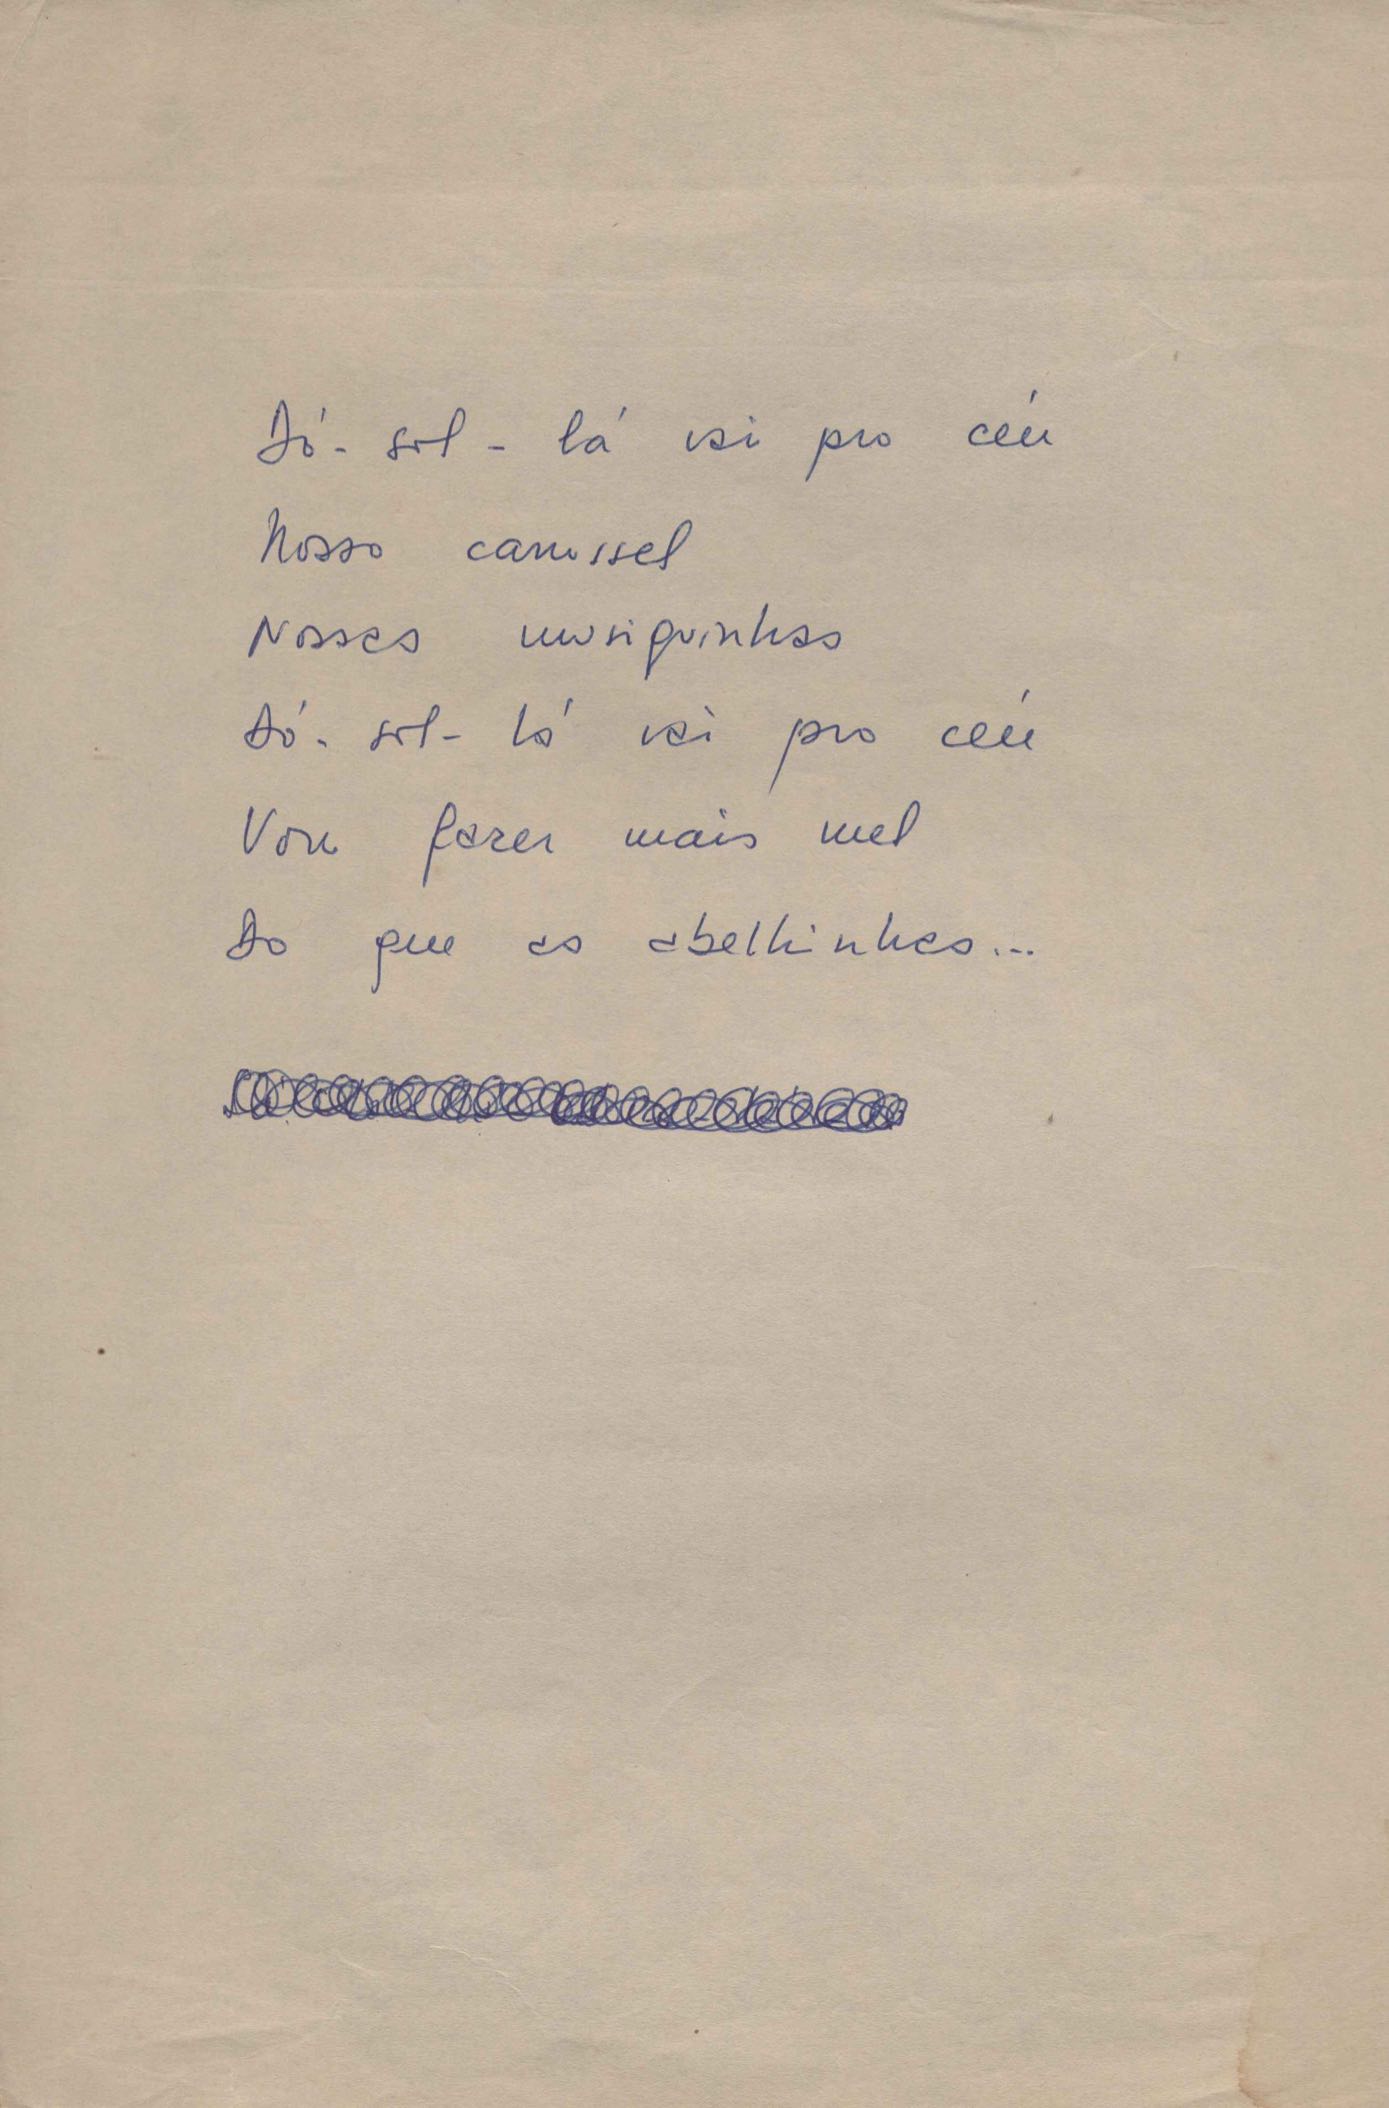 Dó-sol-lá vai pro céu
Nosso carrossel
Nossas musiquinhas
Dó-sol-lá vai pro céu
Vou fazer mais mel
Do que as abelhinhas...